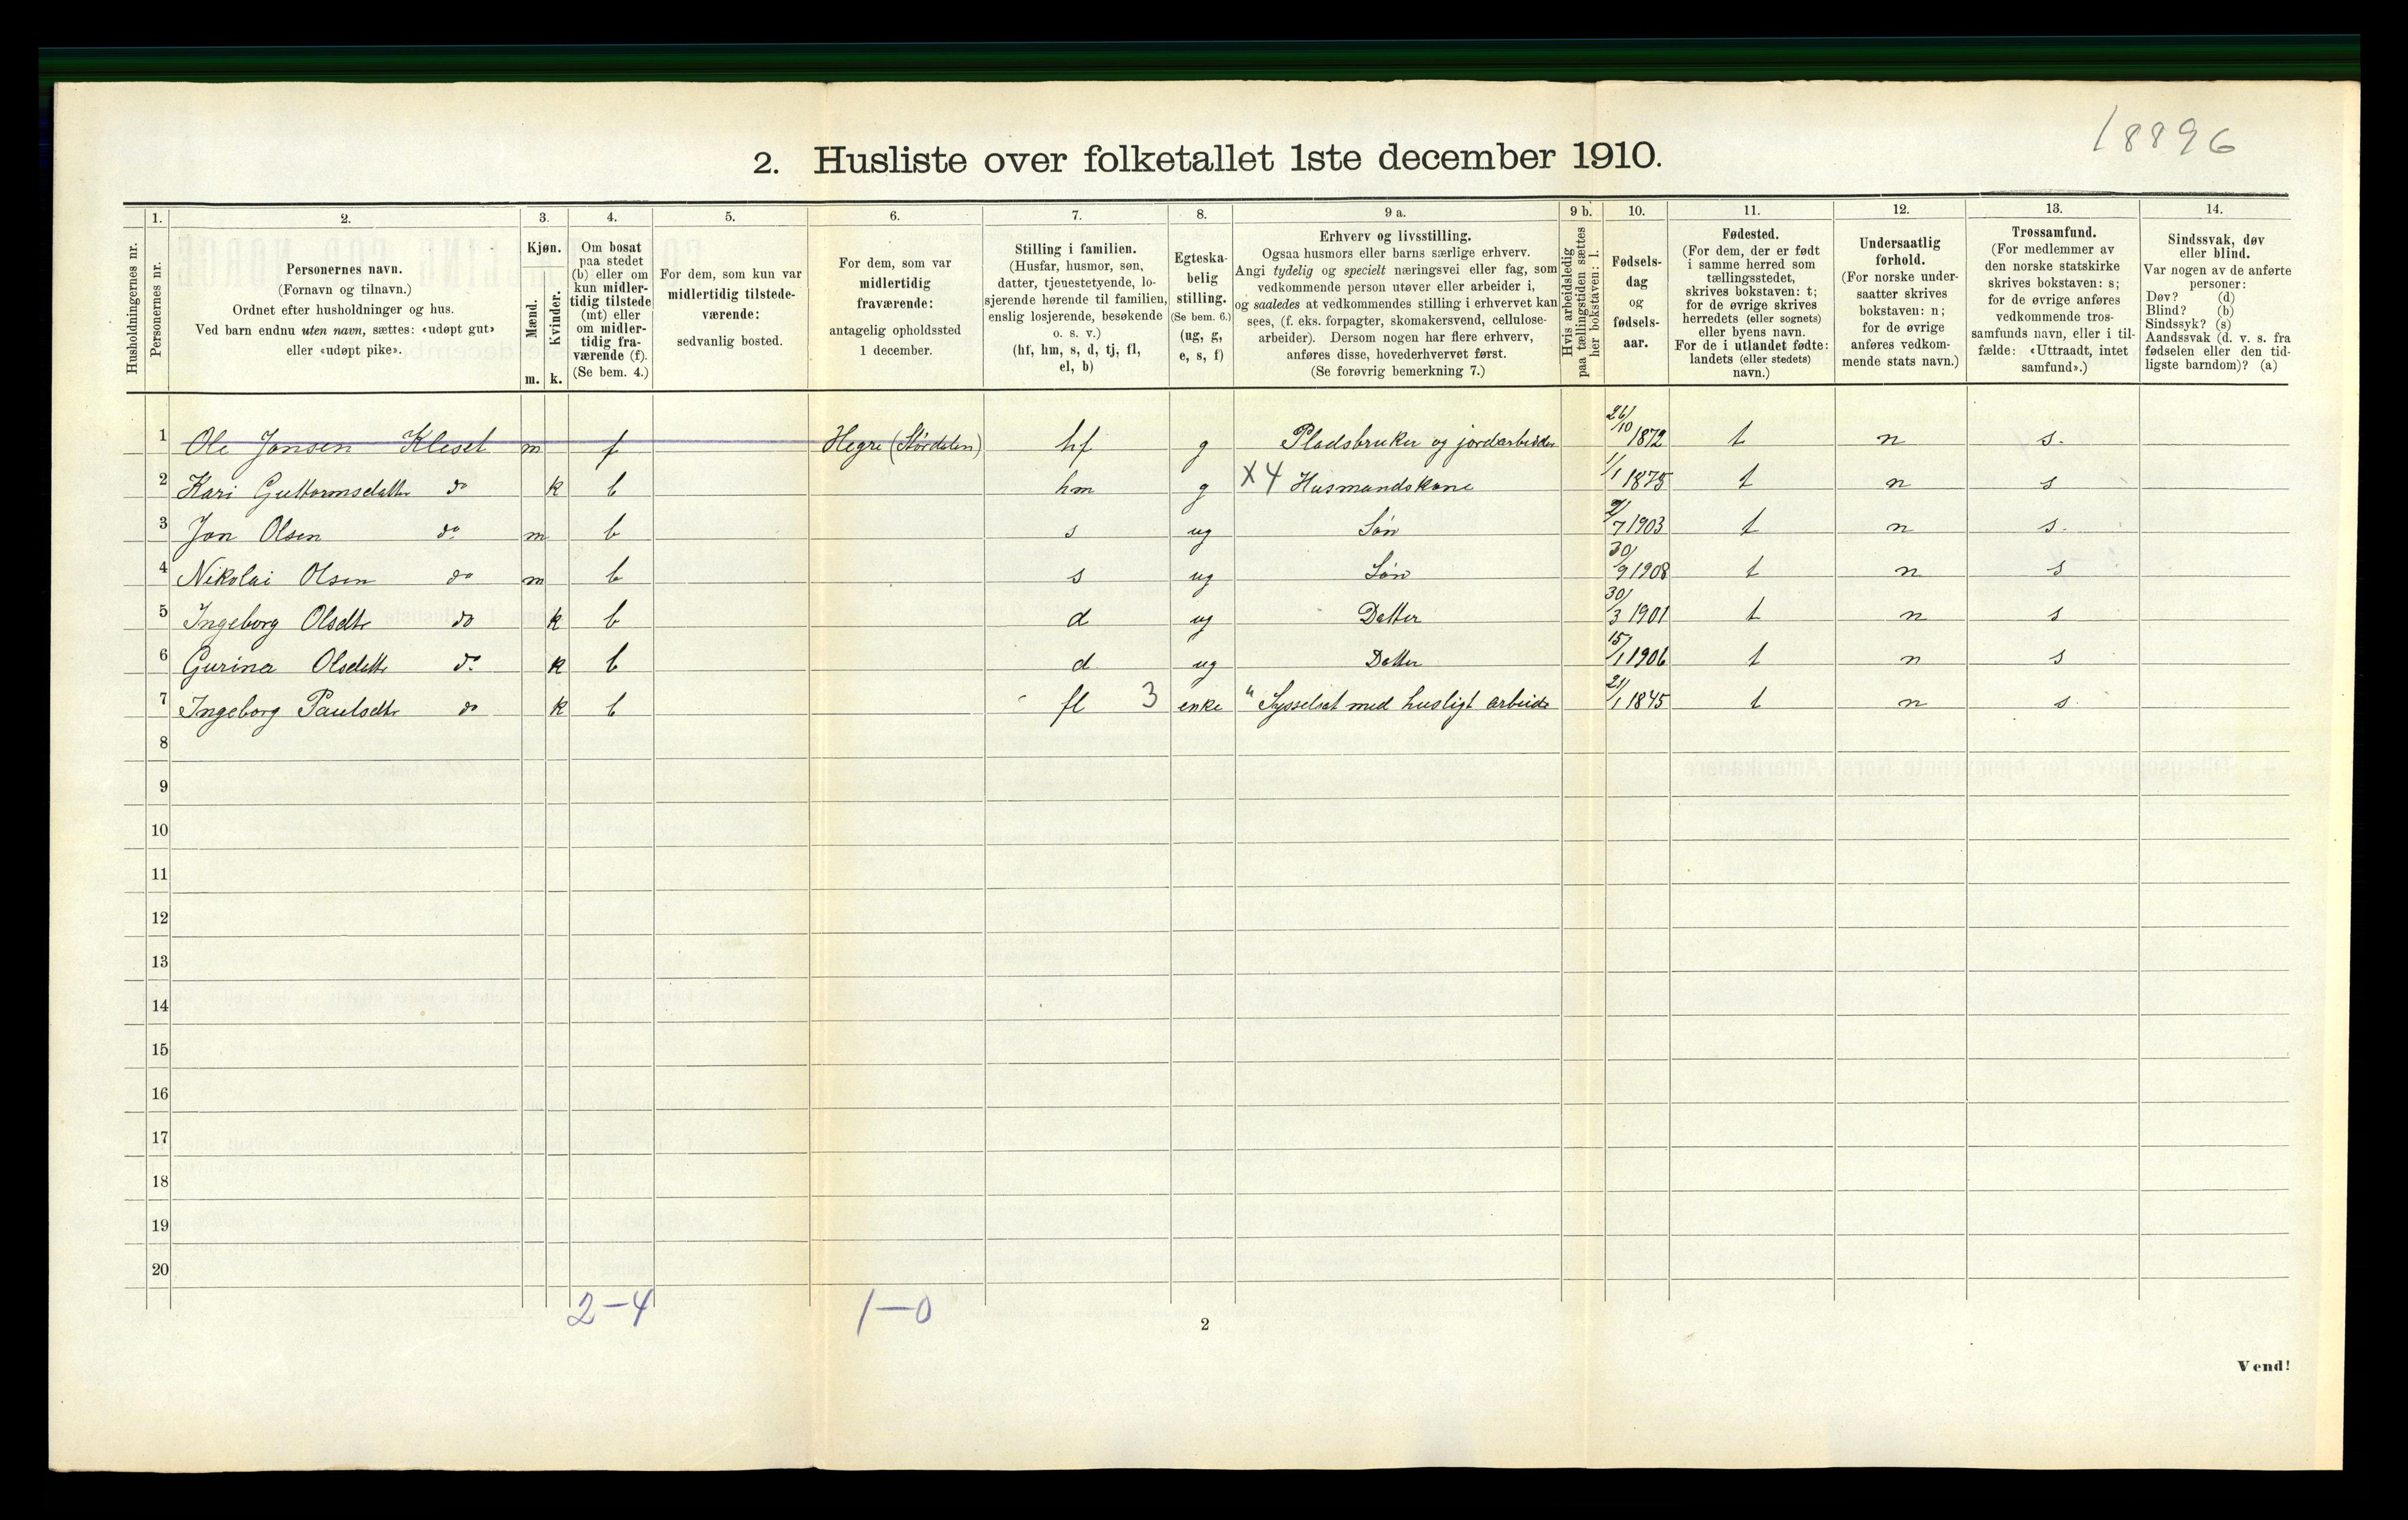 18896
2. Husliste over folketallet 1ste december 1910.
Husholdningernes nr.
1.
Personernes nr.
2.
Personernes navn.
(Fornavn og tilnavn.)
Ordnet efter husholdninger og hus.
Ved barn endnu uten navn, sættes: «udøpt gut»
eller «udøpt pike».
3.
Kjøn.
Mænd.
Kvinder.
m. k.
4.
Om bosat
paa stedet
(b) eller om
kun midler-
tidig tilstede
(mt) eller
om midler-
tidig fra-
værende (f).
(Se bem. 4.)
5.
For dem, som kun var
midlertidig tilstede-
værende:
sedvanlig bosted.
6.
For dem, som var
midlertidig
fraværende:
antagelig opholdssted
1 december.
7.
Stilling i familien.
(Husfar, husmor, søn,
datter, tjenestetyende, lo-
sjerende hørende til familien,
enslig losjerende, besøkende
o. s. v.)
(hf, hm, s, d, tj, fl,
el, b)
8.
Egteska-
belig
stilling.
(Se bem. 6.)
(ug, g,
e, s, f)
9 a.
Erhverv og livsstilling.
Ogsaa husmors eller barns særlige erhverv.
Angi tydelig og specielt næringsvei eller fag, som
vedkommende person utøver eller arbeider i,
og saaledes at vedkommendes stilling i erhvervet kan
sees, (f. eks. forpagter, skomakersvend, cellulose-
arbeider). Dersom nogen har flere erhverv,
anføres disse, hovederhvervet først.
(Se forøvrig bemerkning 7.)
9 b.
Hvis arbeidsledig
paa tællingstiden sættes
her bokstaven: l.
10.
Fødsels-
dag
og
fødsels-
aar.
11.
Fødested.
(For dem, der er født
i samme herred som
tællingsstedet,
skrives bokstaven: t;
for de øvrige skrives
herredets (eller sognets)
eller byens navn.
For de i utlandet fødte:
landets (eller stedets)
navn.)
12.
Undersaatlig
forhold.
(For norske under-
saatter skrives
bokstaven: n;
for de øvrige
anføres vedkom-
mende stats navn.)
13.
Trossamfund.
(For medlemmer av
den norske statskirke
skrives bokstaven: s;
for de øvrige anføres
vedkommende tros-
samfunds navn, eller i til-
fælde: «Uttraadt, intet
samfund».)
14.
Sindssvak, døv
eller blind.
Var nogen av de anførte
personer:
Døv? (d)
Blind? (b)
Sindssyk? (s)
Aandssvak (d. v. s. fra
fødselen eller den tid-
ligste barndom)? (a)
1 Ole Jonsen Kleset m f Hegre (Størdalen) hf g Pladsbruker og jordarbeider 26/10 1872 t n s.
2 Kari Guttormsdattr do k b hm g X4 Husmandskone 1/1 1875 t n s
3 Jon Olsen do m b s ug Søn 9/7 1903 t n s.
4 Nikolai Olsen do m b s ug Søn 30/9 1908 t n s
5 Ingeborg Olsdtr do k b d ug Datter 30/3 1901 t n s
6 Gurina Olsdattr do k b d ug Datter 15/1 1906 t n s
7 Ingeborg Paulsdtr do k b fl 3 enke " Sysselsat med husligt arbeide 21/1 1845 t n s
8
9
10
11
12
13
14
15
16
17
18
19
20
2-4 1-0
2
Vend!